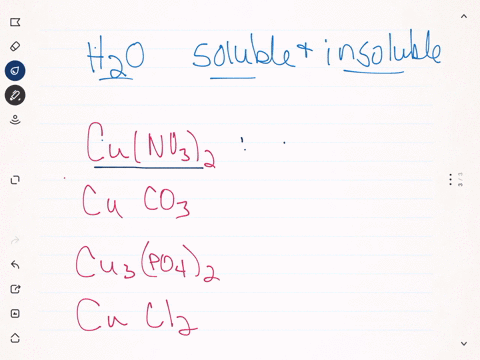 H2O soluble + insoluble
Cu(NO3)2 :
Cu CO3
Cu3(PO4)2
Cu Cl2